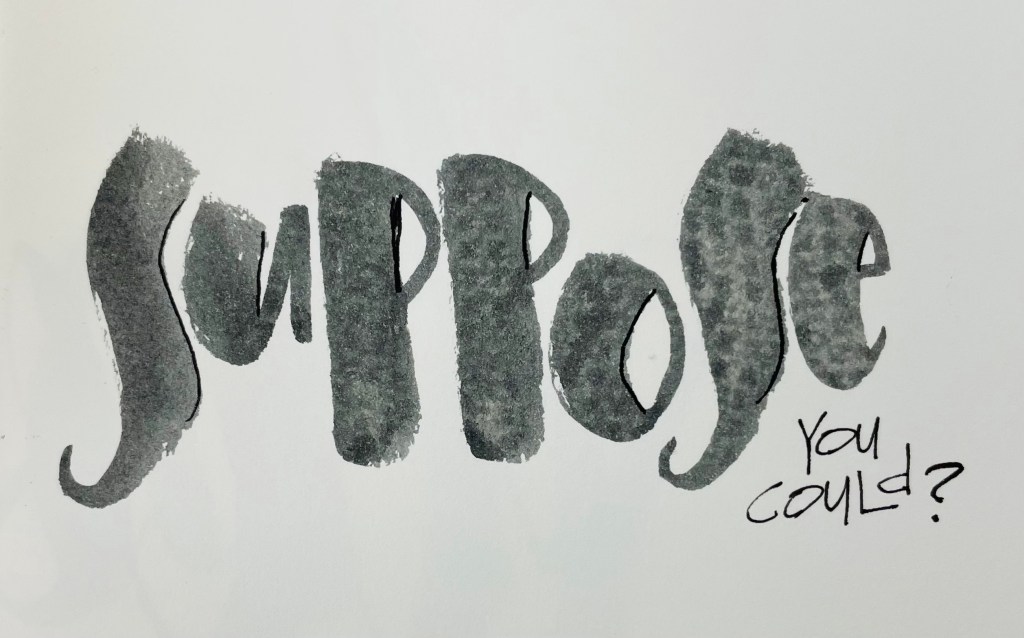 Suppose
you
could?